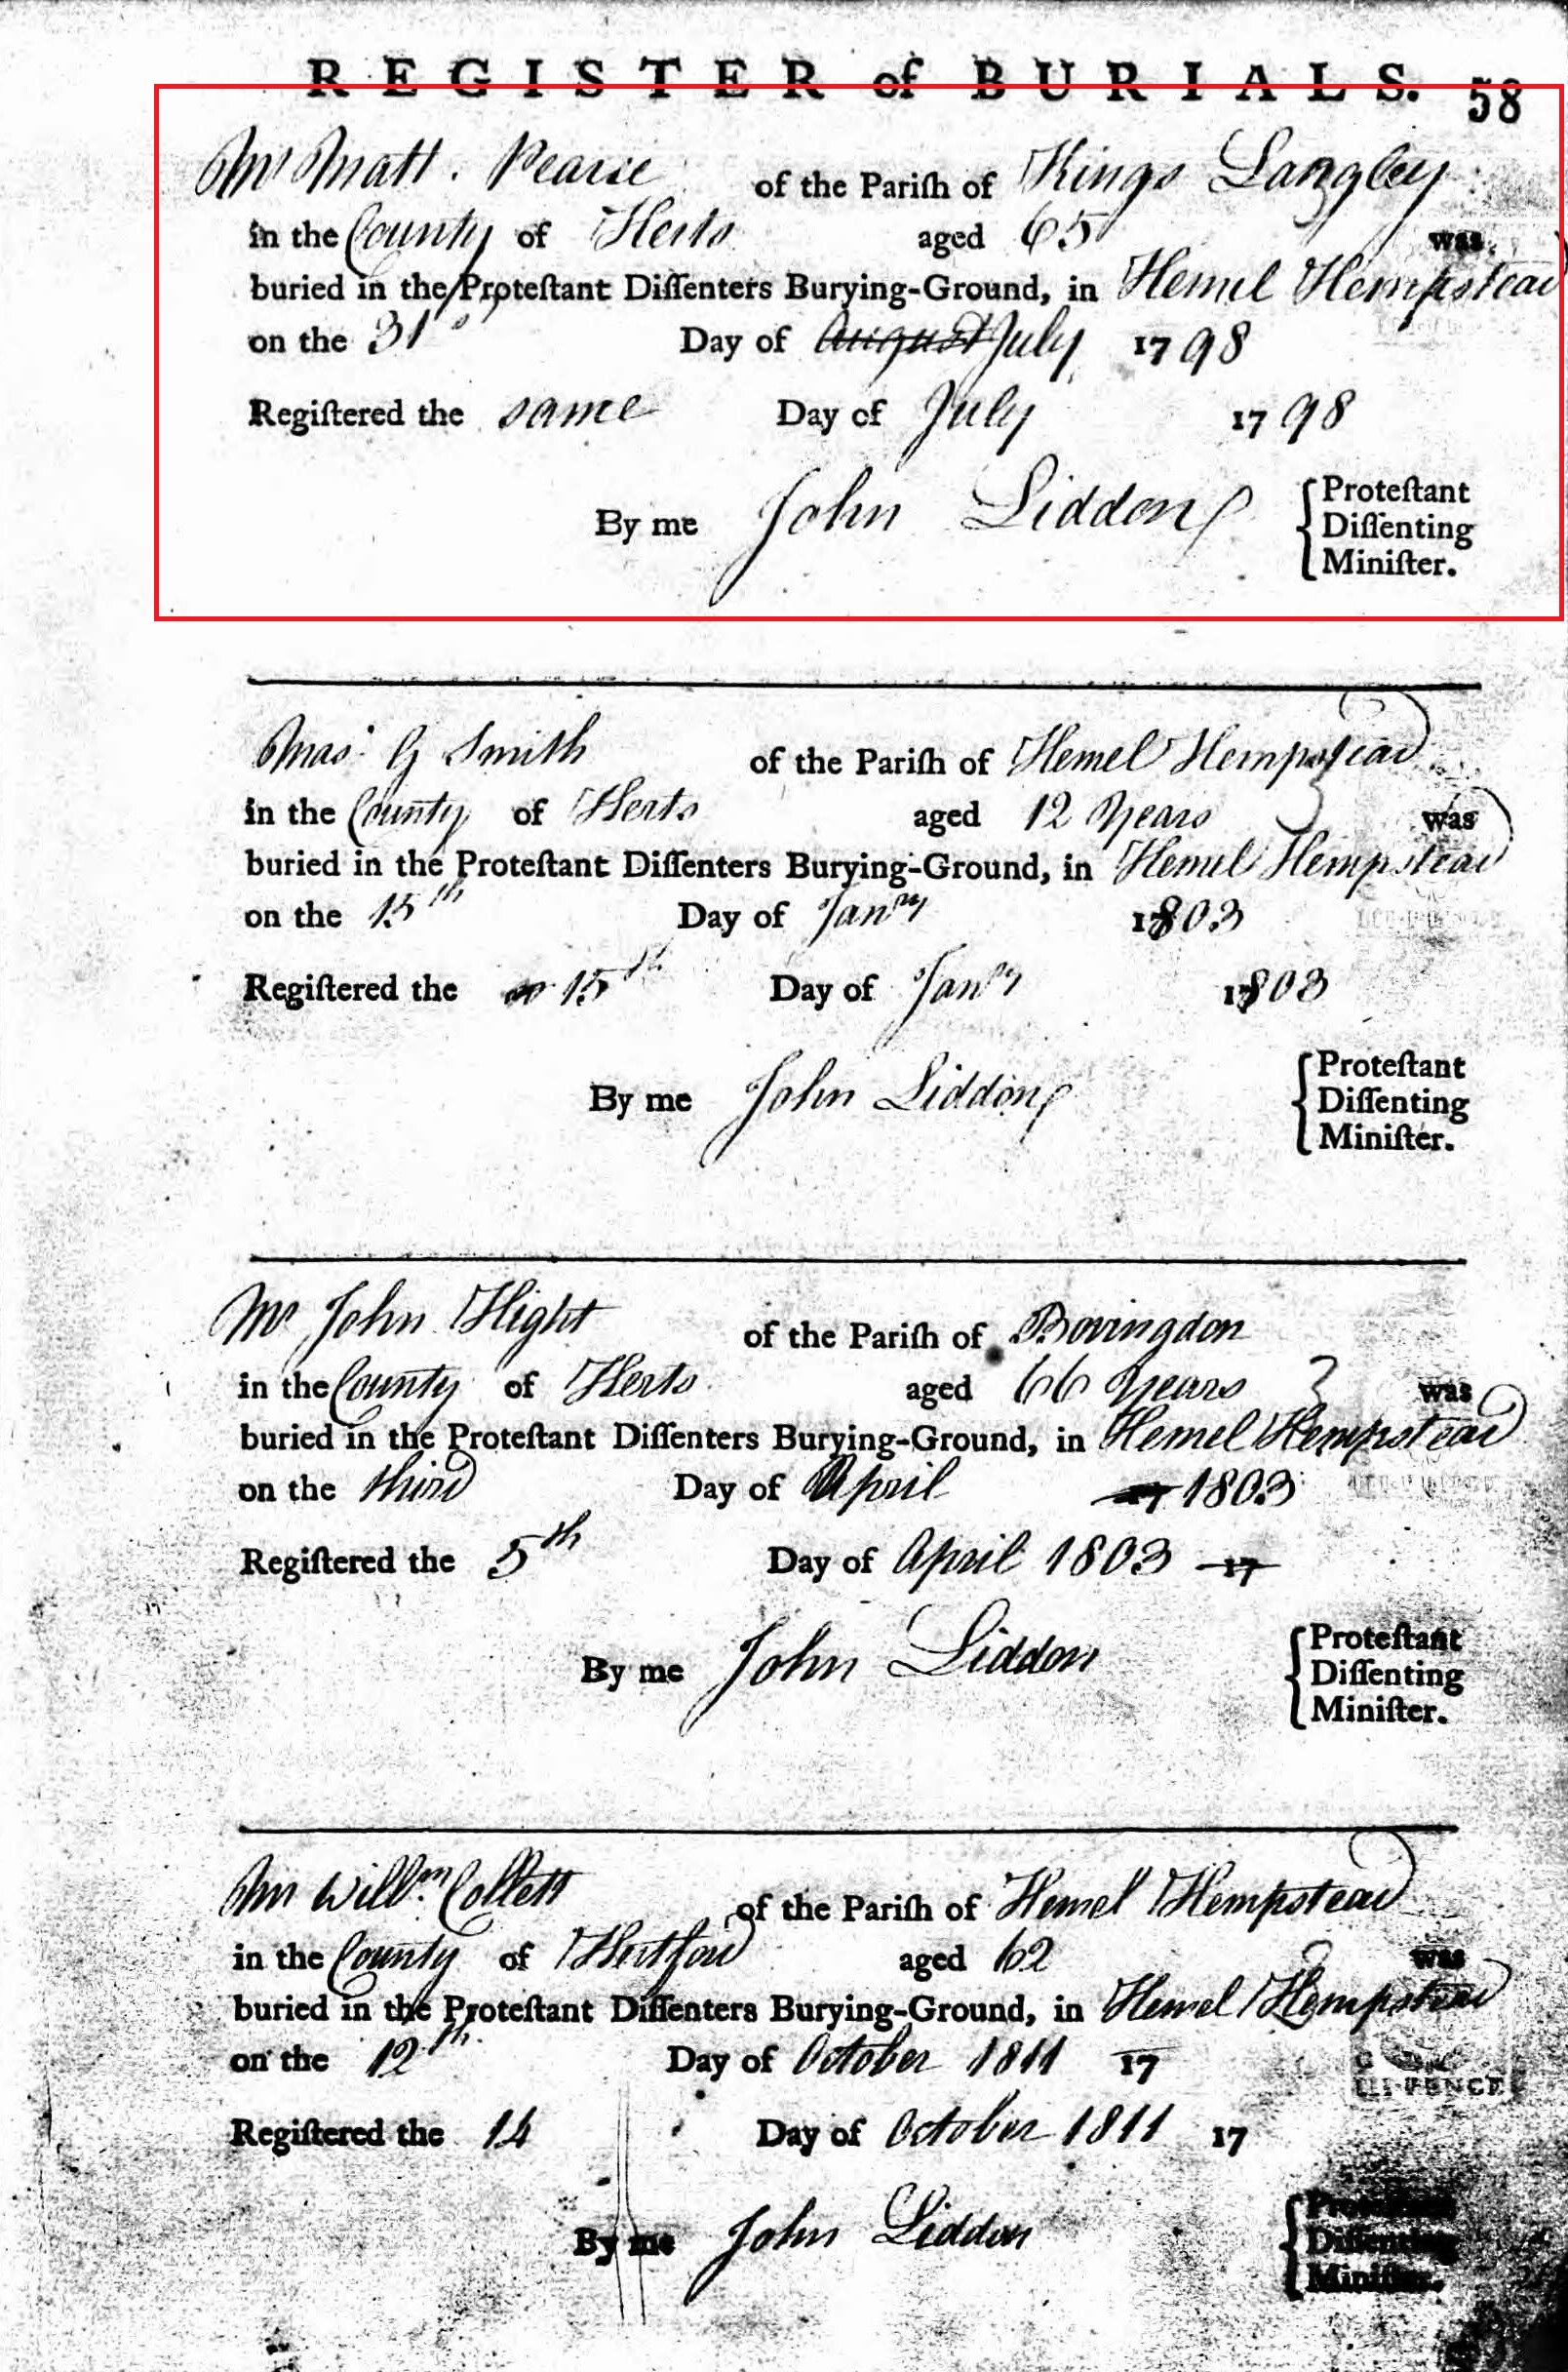 REGISTER of BURIALS. 58
Mr Matt. Pearse of the Pariſh of Kings Langley
in the County of Herts aged 65 was
buried in the Proteſtant Diſſenters Burying-Ground, in Hemel Hempstead
on the 31st Day of August July 1798
Regiſtered the same Day of July 1798
By me John Liddon {Proteſtant
Diſſenting
Miniſter.
Mas. G Smith of the Pariſh of Hemel Hempstead
in the County of Herts aged 12 Years was
buried in the Proteſtant Diſſenters Burying-Ground, in Hemel Hempstead
on the 15th Day of Jany 1803
Regiſtered the 15th Day of Jany 1803
By me John Liddon {Proteſtant
Diſſenting
Miniſter.
Mr John Hight of the Pariſh of Bovingdon
in the County of Herts aged 66 Years was
buried in the Proteſtant Diſſenters Burying-Ground, in Hemel Hempstead
on the third Day of April 17 1803
Regiſtered the 5th Day of April 1803 17
By me John Liddon {Proteſtant
Diſſenting
Miniſter.
Mr Willm. Collett of the Pariſh of Hemel Hempstead
in the County of Hertford aged 62 was
buried in the Proteſtant Diſſenters Burying-Ground, in Hemel Hempstead
on the 12th. Day of October 1811 17
Regiſtered the 14 Day of October 1811 17
By me John Liddon {Proteſtant
Diſſenting
Miniſter.